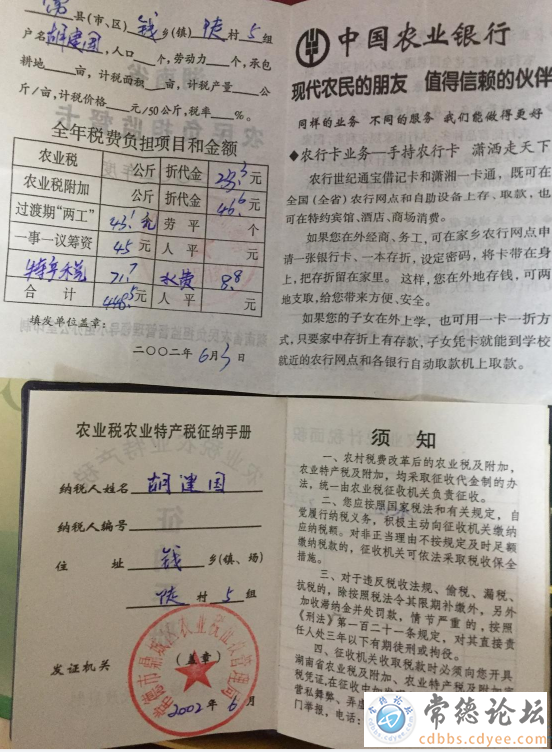 常 县(市、区) 钱 乡(镇) 陡 村 5 组
户名 胡建国,人口 个,劳动力 个,承包
耕地 亩,计税面积 亩,计税产量 公
斤/亩,计税价格 元/50公斤,税率 %。
全年税费负担项目和金额
农业税 公斤 折代金 元
农业税附加 公斤 折代金 46.6 元
过渡期“两工” 43.1 元 劳 平 个
一事一议筹资 45 元 人 平 元
71.7 水费 8.8
合 计 448.5 元 人 平 元
填发单位盖章:
二〇〇二年 6 月 3 日
中国农业银行
现代农民的朋友 值得信赖的伙伴
同样的业务 不同的服务 我们能做得更好
◆农行卡业务—手持农行卡 潇洒走天下
农行世纪通宝借记卡和潇湘一卡通,既可在
全国(全省)农行网点和自助设备上存、取款,也
可在特约宾馆、酒店、商场消费。
如果您在外经商、务工,可在家乡农行网点申
请一张银行卡、一本存折,设定密码,将卡带在身
上,把存折留在家里。这样,您在外地存钱,可两
地支取,给您带来方便、安全。
如果您的子女在外上学,也可用一卡一折方
式,只要家中存折上有存款,子女凭卡就能到学校
就近的农行网点和各银行自动取款机上取款。
农业税农业特产税征纳手册
纳税人姓名 胡建国
纳税人编号
住 址 钱 乡(镇、场)
陡 村 5 组
发证机关 (盖章)
常德市鼎城区农业税征收管理局
2002 年 6 月
须 知
一、农村税费改革后的农业税及附加,
农业特产税及附加,均采取征收代金制的办
法,统一由农业税征收机关负责征收。
二、您应按照国家税法和有关规定,自
觉履行纳税义务,积极主动向征收机关缴纳
应纳税额。对非正当理由不按规定及时足额
缴纳税款的,征收机关可依法采取税收保全
措施。
三、对于违反税收法规、偷税、漏税、
抗税的,除按照税法令其限期补缴外,另外
加收滞纳金并处罚款,情节严重的,按照
《刑法》第一百二十一条规定,对其直接责
任人处三年以下有期徒刑或拘役。
四、征收机关收取税款时必须向您开具
湖南省农业税及附加、农业特产税及附加
税凭证,在征收中如发
营私舞弊、弄虚
门举报,电话:
常德论坛
cdbbs.cdyee.com